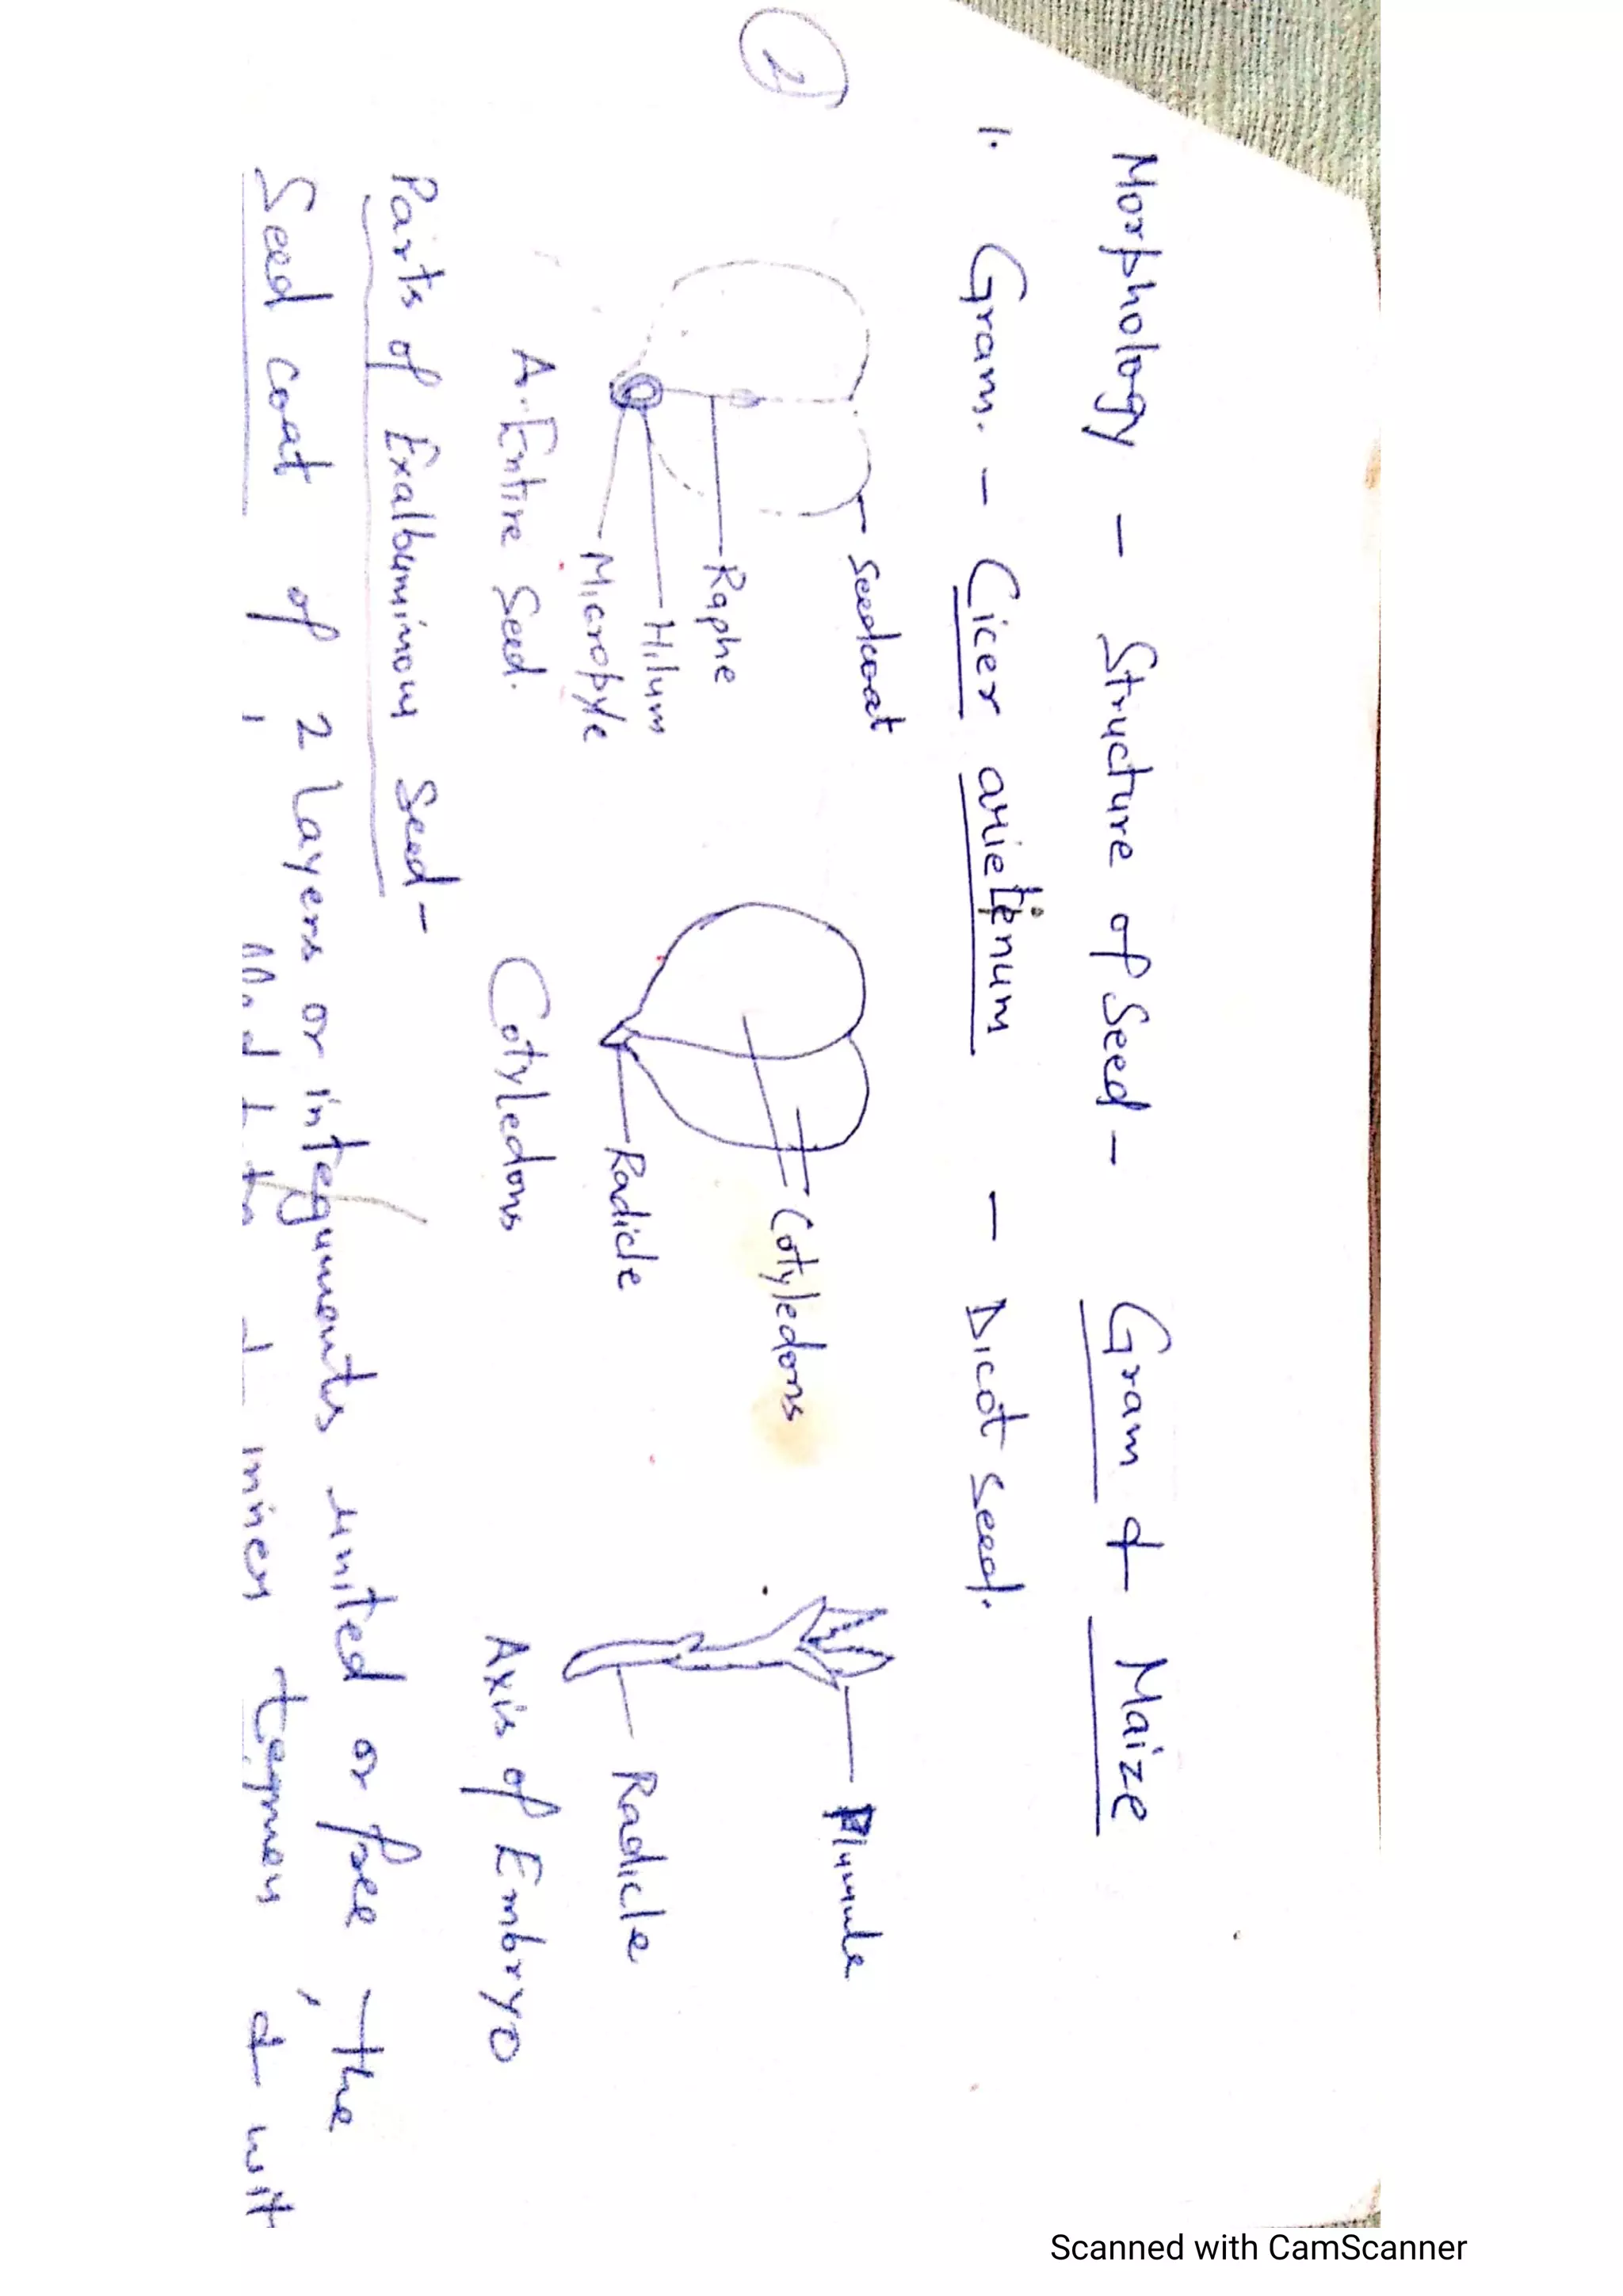 2
Morphology - Structure of Seed - Gram & Maize
1. Gram. - Cicer arietinum - Dicot seed.
Seedcoat
Raphe
Hilum
Micropyle
A. Entire Seed.
Cotyledons
Radicle
Cotyledons
Plumule
Radicle
Axis of Embryo
Parts of Exalbuminous Seed -
Seed coat of 2 layers or integuments united or free, the
inner tegmen & wit
Scanned with CamScanner